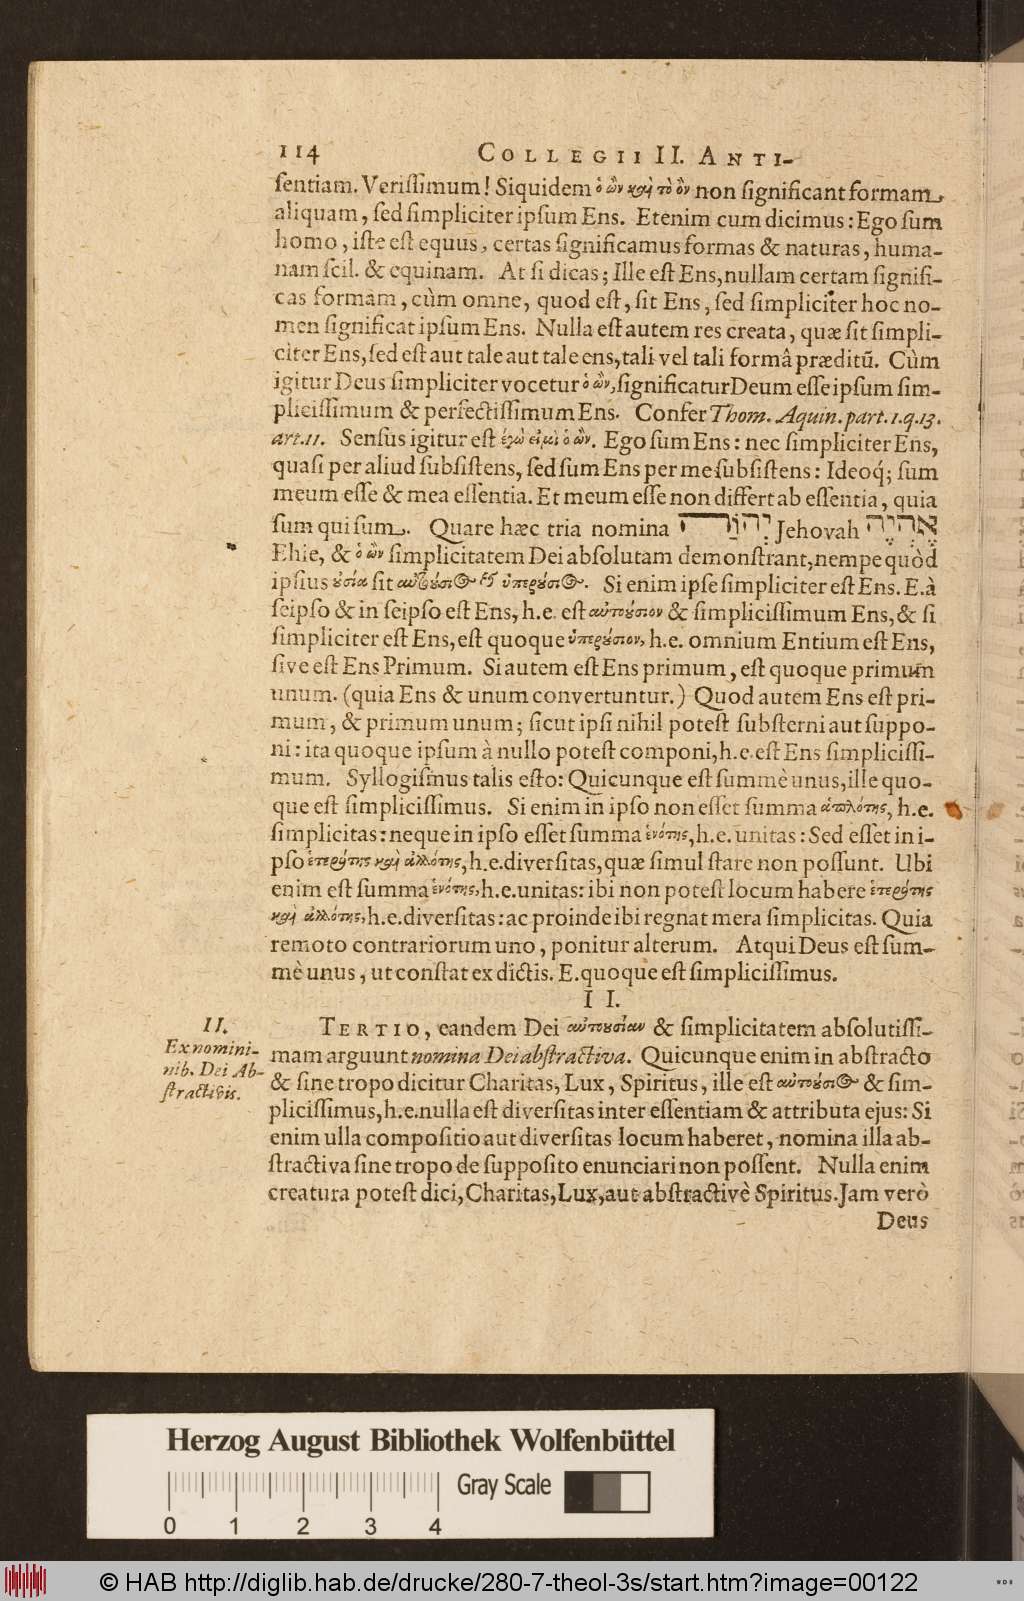 114 COLLEGII II. ANTI-
ſentiam. Veriſſimum! Siquidem ὁ ὢν καὶ τὸ ὂν non ſignificant formam
aliquam, ſed ſimpliciter ipſum Ens. Etenim cum dicimus: Ego ſum
homo, iſte eſt equus, certas ſignificamus formas & naturas, huma-
nam ſcil. & equinam. At ſi dicas; Ille eſt Ens, nullam certam ſignifi-
cas formam, cùm omne, quod eſt, ſit Ens, ſed ſimpliciter hoc no-
men ſignificat ipſum Ens. Nulla eſt autem res creata, quæ ſit ſimpli-
citer Ens, ſed eſt aut tale aut tale ens, tali vel tali formâ præditũ. Cùm
igitur Deus ſimpliciter vocetur ὁ ὢν, ſignificatur Deum eſſe ipſum ſim-
pliciſſimum & perfectiſſimum Ens. Confer Thom. Aquin. part. 1. q. 13.
art. 11. Senſus igitur eſt ἐγὼ εἰμὶ ὁ ὢν. Ego ſum Ens: nec ſimpliciter Ens,
quaſi per aliud ſubſiſtens, ſed ſum Ens per me ſubſiſtens: Ideoq́; ſum
meum eſſe & mea eſſentia. Et meum eſſe non differt ab eſſentia, quia
ſum qui ſum. Quare hæc tria nomina יְהוָֹה Jehovah אֶהְיֶה
Ehie, & ὁ ὢν ſimplicitatem Dei abſolutam demonſtrant, nempe quòd
ipſius ȣ̓σία ſit αὐτȣ́σιος καὶ ὑπερȣ́σιος. Si enim ipſe ſimpliciter eſt Ens. E. à
ſeipſo & in ſeipſo eſt Ens, h.e. eſt αὐτοȣ́σιον & ſimpliciſſimum Ens, & ſi
ſimpliciter eſt Ens, eſt quoque ὑπερȣ́σιον, h.e. omnium Entium eſt Ens,
ſive eſt Ens Primum. Si autem eſt Ens primum, eſt quoque primum
unum. (quia Ens & unum convertuntur.) Quod autem Ens eſt pri-
mum, & primum unum; ſicut ipſi nihil poteſt ſubſterni aut ſuppo-
ni: ita quoque ipſum à nullo poteſt componi, h.e. eſt Ens ſimpliciſſi-
mum. Syllogiſmus talis eſto: Quicunque eſt ſummè unus, ille quo-
que eſt ſimpliciſſimus. Si enim in ipſo non eſſet ſumma ἁπλότης, h.e.
ſimplicitas: neque in ipſo eſſet ſumma ἑνότης, h.e. unitas: Sed eſſet in i-
pſo ἑτερότης καὶ ἀλλότης, h.e. diverſitas, quæ ſimul ſtare non poſſunt. Ubi
enim eſt ſumma ἑνότης, h.e. unitas: ibi non poteſt locum habere ἑτερότης
καὶ ἀλλότης, h.e. diverſitas: ac proinde ibi regnat mera ſimplicitas. Quia
remoto contrariorum uno, ponitur alterum. Atqui Deus eſt ſum-
mè unus, ut conſtat ex dictis. E. quoque eſt ſimpliciſſimus.
II.
II.
Ex nomini-
nib. Dei Ab-
ſtractivis.
TERTIO, eandem Dei αὐτουσίαν & ſimplicitatem abſolutiſſi-
mam arguunt nomina Dei abſtractiva. Quicunque enim in abſtracto
& ſine tropo dicitur Charitas, Lux, Spiritus, ille eſt αὐτοȣ́σιος & ſim-
pliciſſimus, h.e. nulla eſt diverſitas inter eſſentiam & attributa ejus: Si
enim ulla compoſitio aut diverſitas locum haberet, nomina illa ab-
ſtractiva ſine tropo de ſuppoſito enunciari non poſſent. Nulla enim
creatura poteſt dici, Charitas, Lux, aut abſtractivè Spiritus. Jam verò
Deus
Herzog August Bibliothek Wolfenbüttel
Gray Scale
0 1 2 3 4
© HAB http://diglib.hab.de/drucke/280-7-theol-3s/start.htm?image=00122